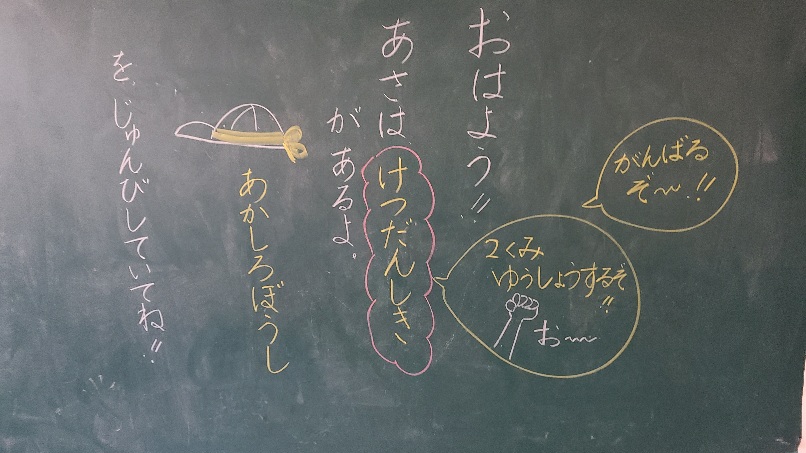 おはよう!!
あさは、けつだんしき
があるよ。
あかしろぼうし
を、じゅんびしていてね!!
がんばる
ぞ〜!!
2くみ
ゆうしょうするぞ
!!
お〜